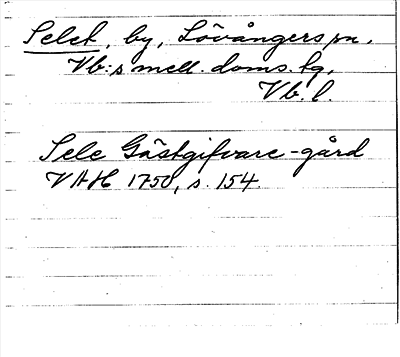 Selet, by, Lövångers sn.
Vb:s mell. doms. hg,
Vb. l.
Sele Gästgifvare-gård
VAH 1750, s. 154.